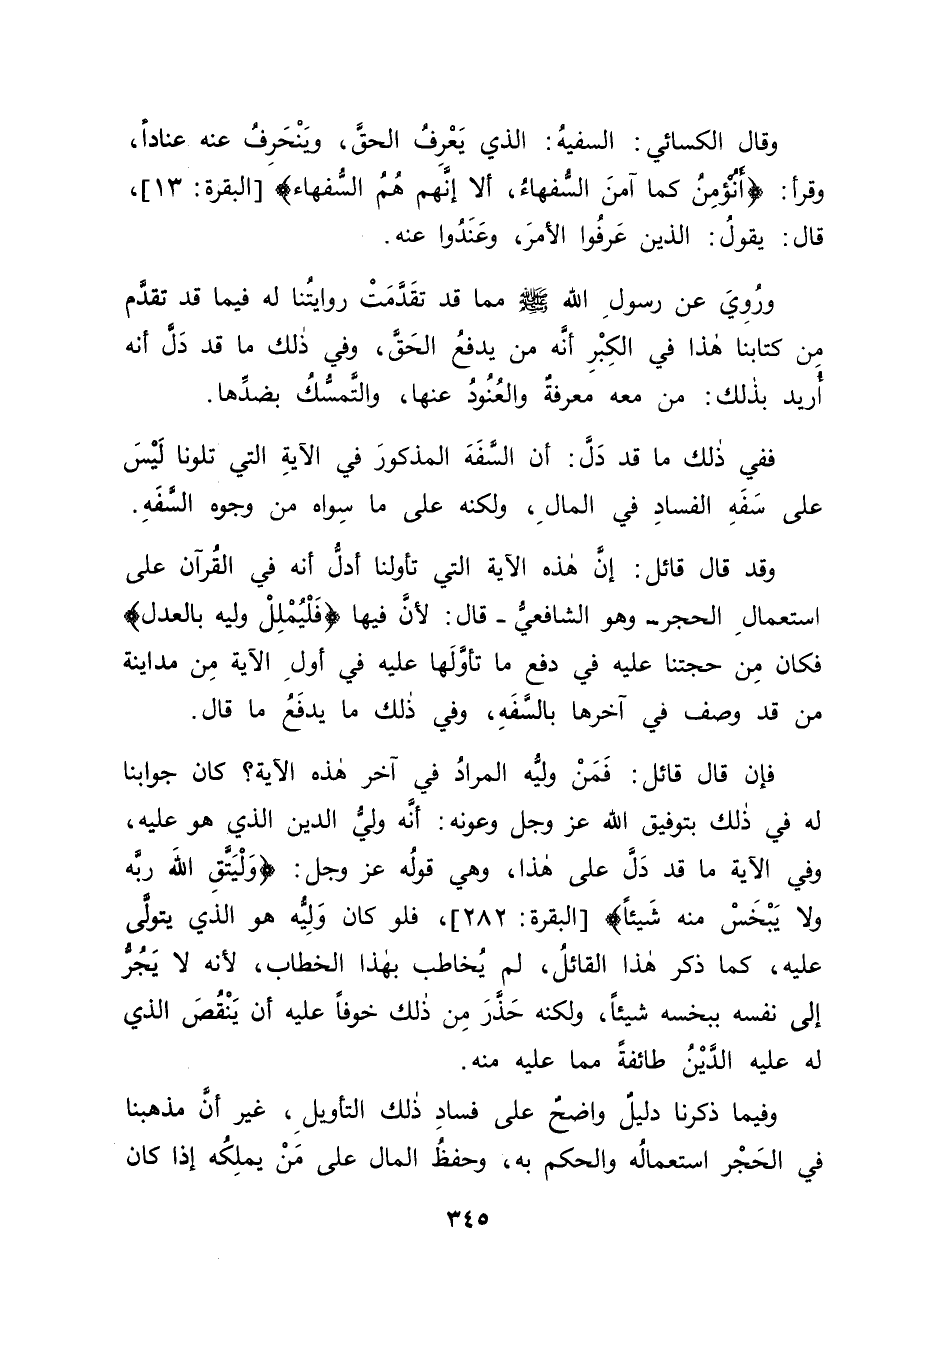 وقال الكسائي: السفيهُ: الذي يَعْرِفُ الحقَّ، ويَنْحَرِفُ عنه عناداً،
وقرأ: ﴿أَنُؤْمِنُ كما آمنَ السُّفهاءُ، ألا إنَّهم هُمُ السُّفهاء﴾ [البقرة: ١٣]،
قال: يقولُ: الذين عَرفُوا الأمرَ، وعَنَدُوا عنه.
ورُوِيَ عن رسولِ الله ﷺ مما قد تقَدَّمَتْ روايتُنا له فيما قد تقدَّم
مِن كتابنا هٰذا في الكِبْرِ أنَّه من يدفعُ الحَقَّ، وفي ذٰلك ما قد دَلَّ أنه
أُريد بذٰلك: من معه معرفةٌ والعُنُودُ عنها، والتَّمسُّكُ بضدِّها.
ففي ذٰلك ما قد دَلَّ: أن السَّفَهَ المذكورَ في الآيةِ التي تلونا لَيْسَ
على سَفَهِ الفسادِ في المالِ، ولكنه على ما سِواه من وجوه السَّفَهِ.
وقد قال قائل: إنَّ هٰذه الآية التي تأولنا أدلُّ أنه في القُرآن على
استعمالِ الحجر ـ وهو الشافعيُّ ـ قال: لأنَّ فيها ﴿فَلْيُمْلِلْ وليه بالعدل﴾
فكان مِن حجتنا عليه في دفع ما تأوَّلَها عليه في أولِ الآية مِن مداينة
من قد وصف في آخرها بالسَّفَهِ، وفي ذٰلك ما يدفَعُ ما قال.
فإن قال قائل: فَمَنْ وليُّه المرادُ في آخر هٰذه الآية؟ كان جوابنا
له في ذٰلك بتوفيق الله عز وجل وعونه: أنَّه وليُّ الدين الذي هو عليه،
وفي الآية ما قد دَلَّ على هٰذا، وهي قولُه عز وجل: ﴿وَلْيَتَّقِ اللهَ ربَّه
ولا يَبْخَسْ منه شَيئاً﴾ [البقرة: ٢٨٢]، فلو كان وَلِيُّه هو الذي يتولَّى
عليه، كما ذكر هٰذا القائلُ، لم يُخاطب بهٰذا الخطاب، لأنه لا يَجُرُّ
إلى نفسه ببخسه شيئاً، ولكنه حَذَّرَ مِن ذٰلك خوفاً عليه أن يَنْقُصَ الذي
له عليه الدَّيْنُ طائفةً مما عليه منه.
وفيما ذكرنا دليلٌ واضحٌ على فسادِ ذٰلك التأويلِ، غير أنَّ مذهبنا
في الحَجْر استعمالُه والحكم به، وحفظُ المال على مَنْ يملِكُه إذا كان
٣٤٥